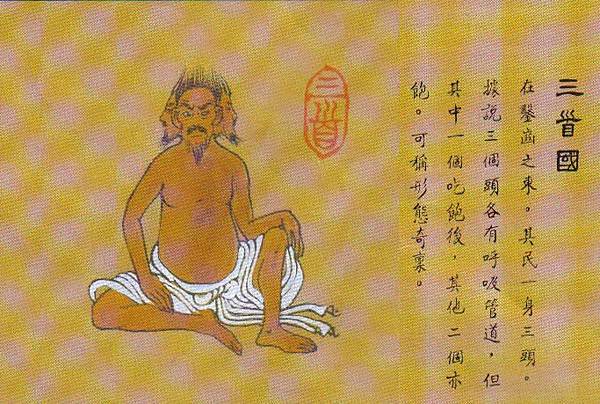 三首國
在鑿齒之東。其民一身三頭。
據說三個頭各有呼吸管道，但
其中一個吃飽後，其他二個亦
飽。可稱形態奇。
三首